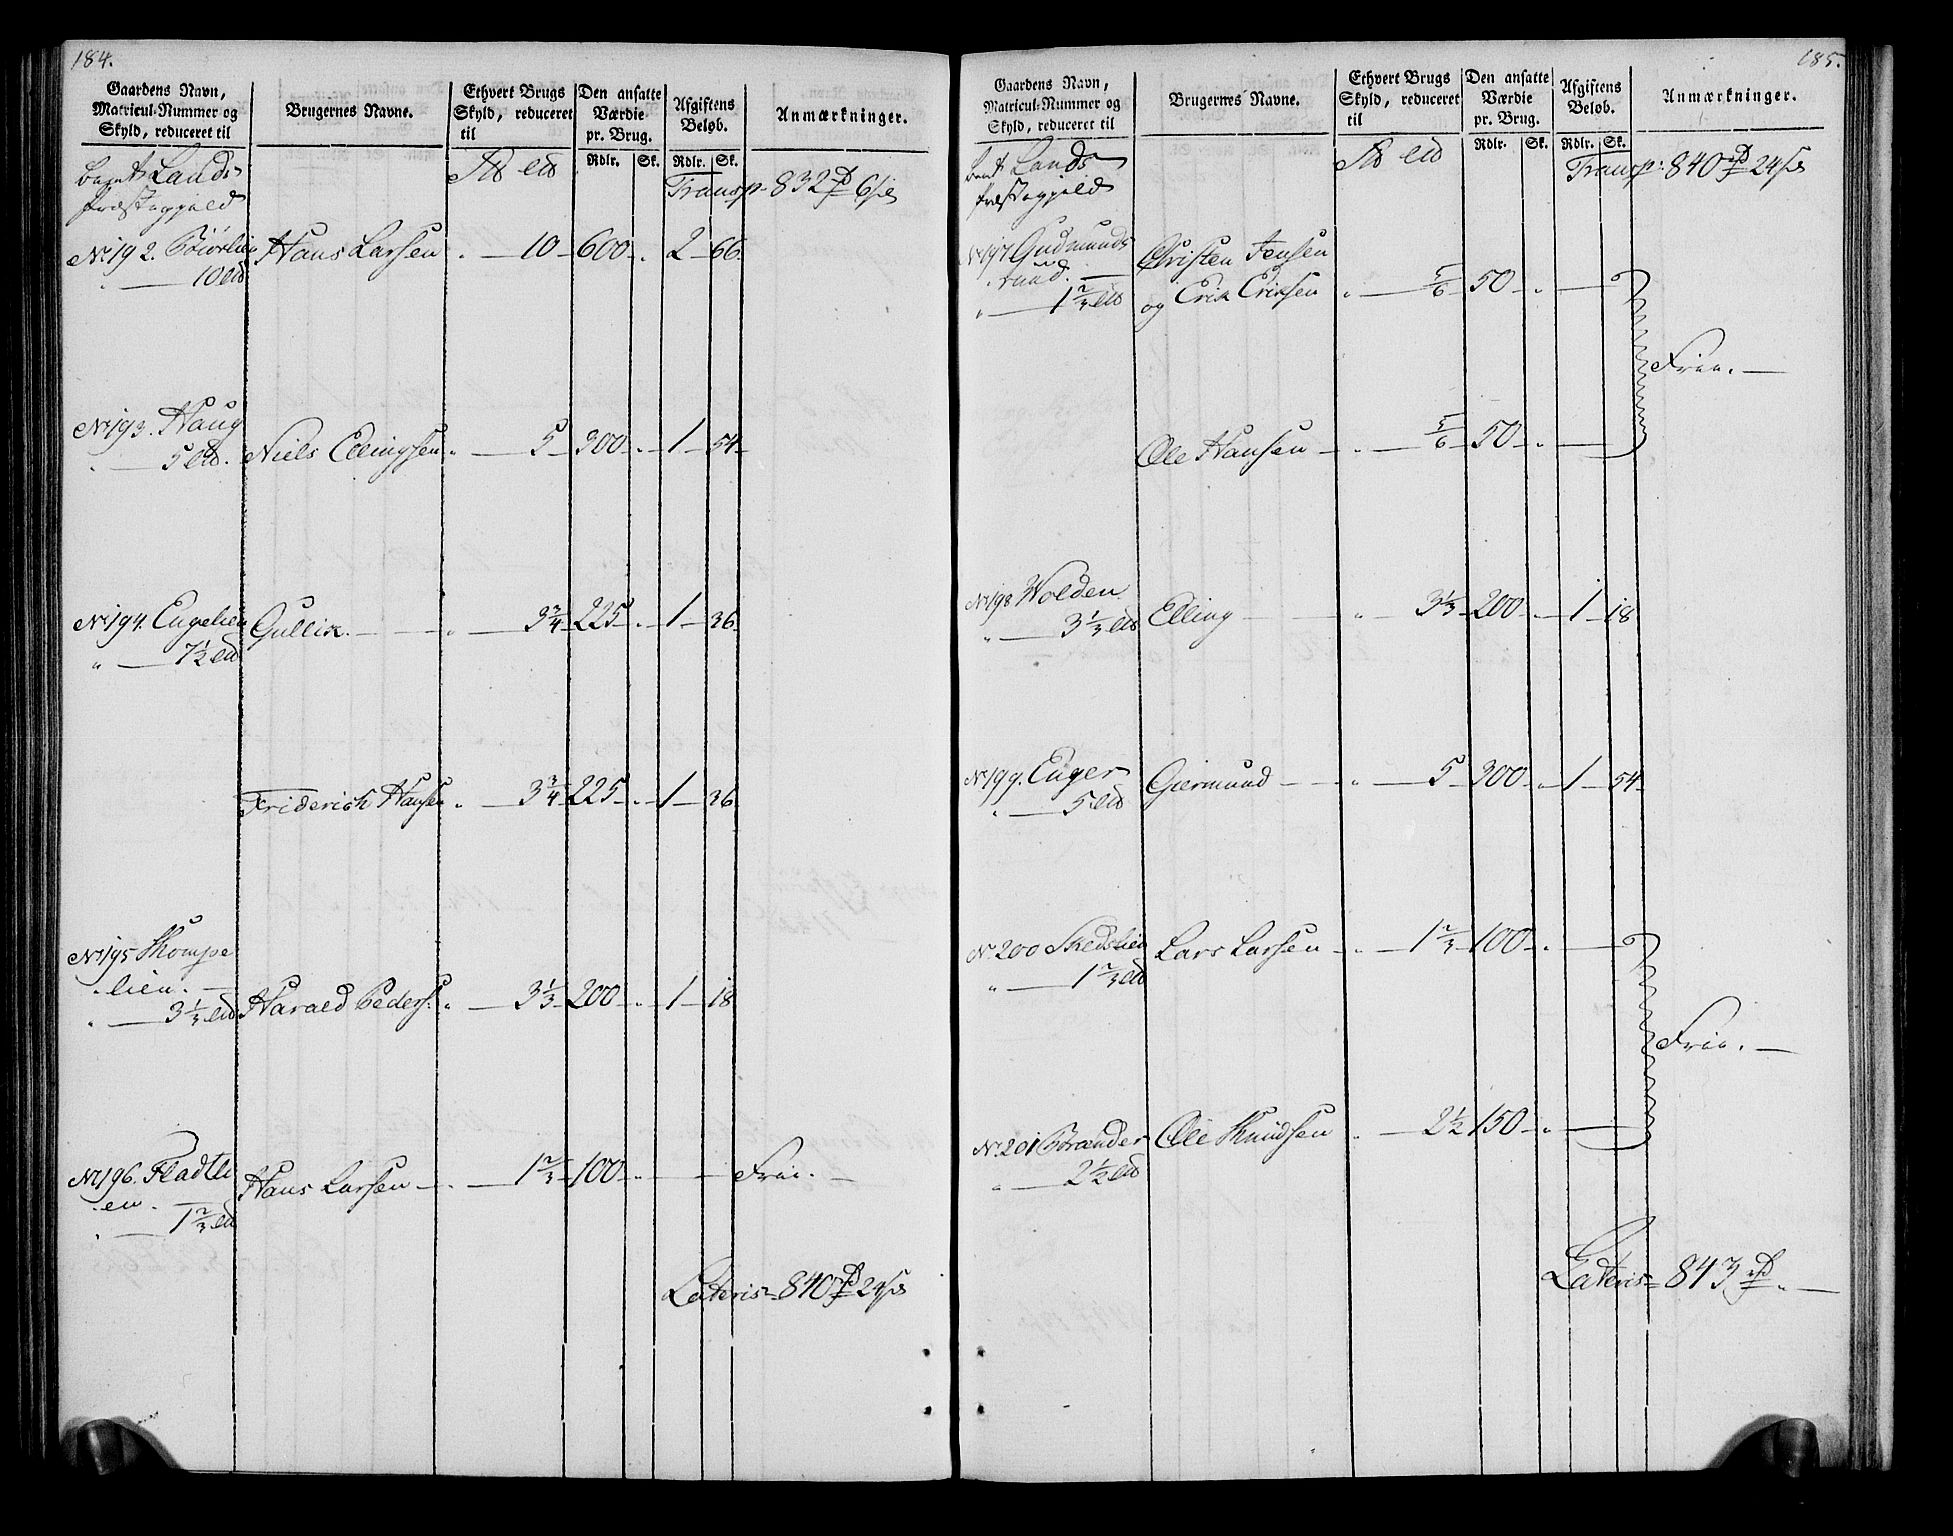 184.
Gaardens Navn,
Matricul-Nummer og
Skyld, reduceret til
Brugernes Navne.
Ethvert Brugs
Skyld, reduceret
til
Den ansatte
Værdie
pr. Brug.
Rdlr. Sk.
Afgiftens
Beløb.
Rdlr. Sk.
Anmærkninger.
Lands
Præstegjeld
Transp: 832 rd 6 sk
No 192. Biørlien Hans Larsen " 10 600 " 2 66
" 10 ld
No 193. Haug
" 5 ld. Niels Ellingsen " 5 300 " 1 54
No 194. Engelien Gullik. " 3 3/4 225 " 1 36
" 7 1/2 ld
Friderich Hansen " 3 3/4 225 " 1 36
No 195 Skompe
lien.
" 3 1/3 ld Harald Peders: " 3 1/3 200 " 1 18
No 196. Fladtli
en. Hans Larsen " 1 2/3 100 " Frie.
" 1 2/3 ld
Lateris 840 rd 24 sk
185.
Gaardens Navn,
Matricul-Nummer og
Skyld, reduceret til
Brugernes Navne.
Ethvert Brugs
Skyld, reduceret
til
Den ansatte
Værdie
pr. Brug.
Rdlr. Sk.
Afgiftens
Beløb.
Rdlr. Sk.
Anmærkninger.
Lands
Præstegjeld
Transp: 840 rd 24 sk
No 197 Gudmunds Christen Jensen
rud.
" 1 2/3 ld og Erik Eriksen " 5/6 50 "
Frie.
Ole Hansen " 5/6 50 "
No 198 Wolden
" 3 1/3 ld Elling " 3 1/3 200 " 1 18
No 199. Enger Giermund " 5 300 " 1 54
" 5 ld
No 200 Skedslien Lars Larsen " 1 2/3 100 "
" 1 2/3 ld
Frie.
No 201 Brænder Ole Knudsen " 2 1/2 150 "
" 2 1/2 ld
Lateris 843 rd "